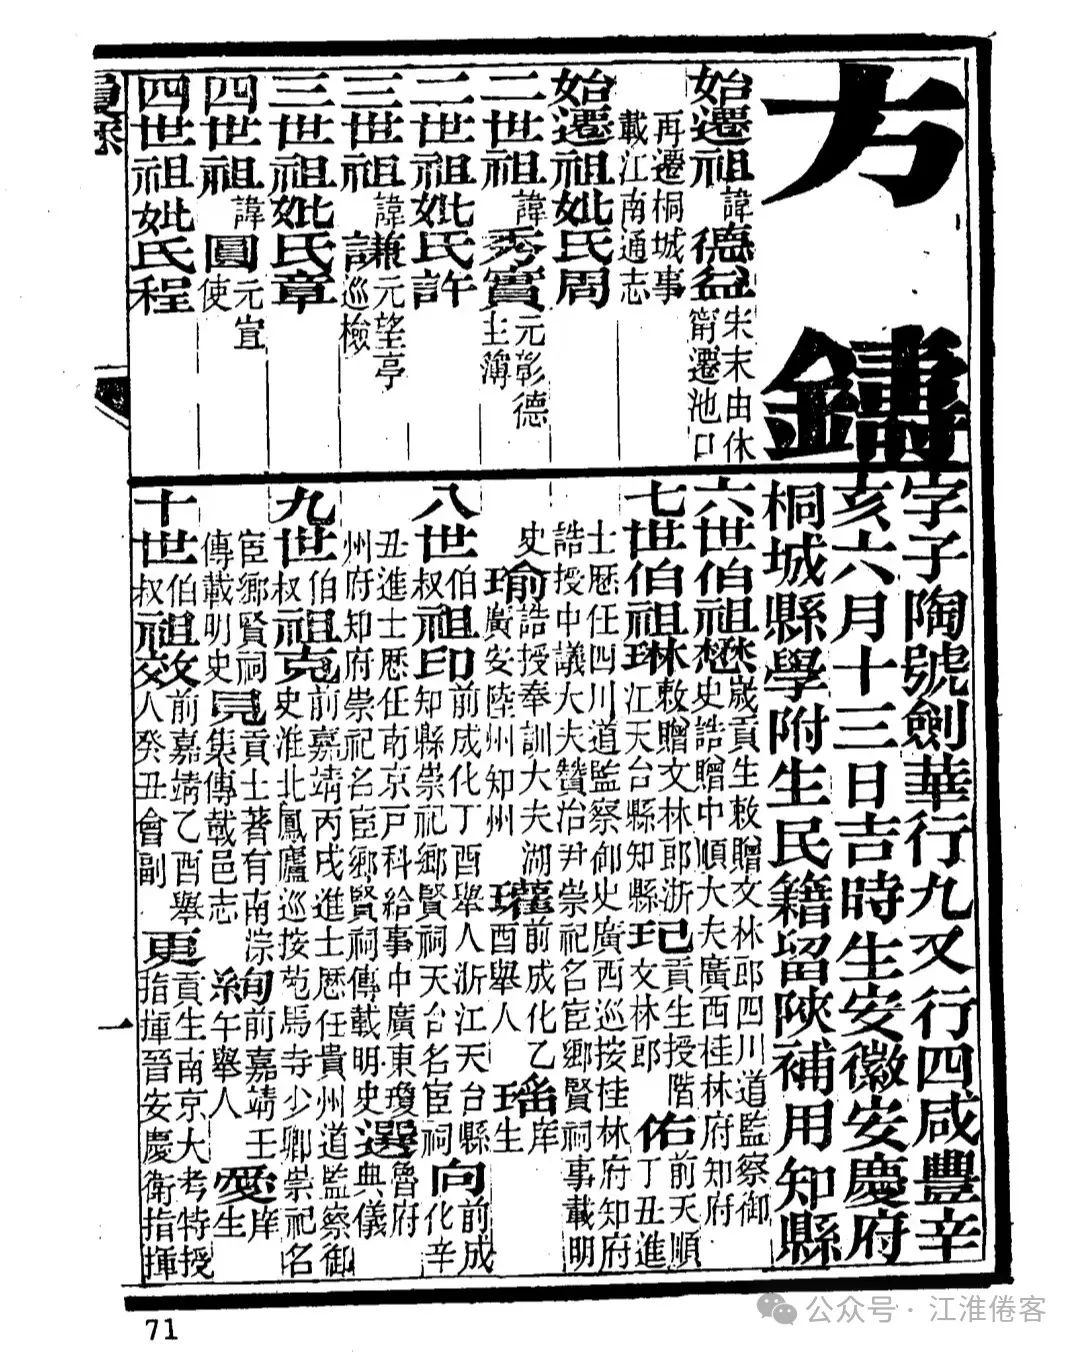 方鑄
字子陶號劍華行九又行四咸豐辛
亥六月十三日吉時生安徽安慶府
桐城縣學附生民籍留陝補用知縣
始遷祖諱德益宋末由休甯遷池口
再遷桐城事
載江南通志
始遷祖妣氏周
二世祖諱秀實元彰德主簿
二世祖妣氏許
三世祖諱謙元望亭巡檢
三世祖妣氏章
四世祖諱圓元宣使
四世祖妣氏程
六世伯祖懋歲貢生敕贈文林郎四川道監察御史誥贈中順大夫廣西桂林府知府
七世伯祖琳敕贈文林郎浙江天台縣知縣玘貢生授階文林郎佑前天順丁丑進
士歷任四川道監察御史廣西巡按桂林府知府
誥授中議大夫贊治尹崇祀名宦鄉賢祠事載明
史瑜誥授奉訓大夫湖廣安陸州知州瓘前成化乙酉舉人瑤庠生
八世伯叔祖印前成化丁酉舉人浙江天台縣知縣崇祀鄉賢祠天台名宦祠向前成化辛
丑進士歷任南京戶科給事中廣東瓊州府知府崇祀名宦鄉賢祠傳載明史選魯府典儀
九世伯叔祖克前嘉靖丙戌進士歷任貴州道監察御史淮北鳳廬巡按苑馬寺少卿崇祀名
宦鄉賢祠傳載明史見貢士著有南淙集傳載邑志絢前嘉靖壬午舉人愛庠生
十世伯叔祖效前嘉靖乙酉舉人癸丑會副更貢生南京大考特授指揮晉安慶衛指揮
一
71
公众号·江淮倦客